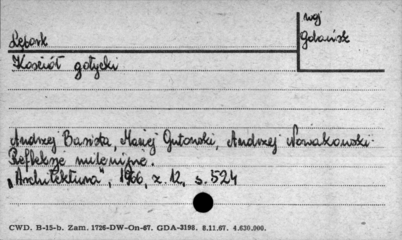 Lębork
woj
Gdańsk
Kościół gotycki
Andrzej Basista, Maciej Gutowski, Andrzej Nowakowski.
Refleksje milenijne.
"Architektura", 1966, z. 12, s. 524
CWD. B-15-b. Zam. 1726-DW-On-67. GDA-3198. 8.11.67. 4.620.000.